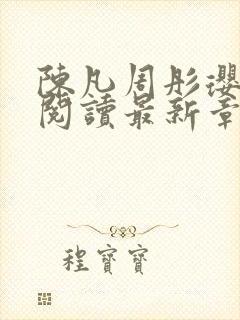 陳凡周彤瓔
閱讀最新章
程寶寶